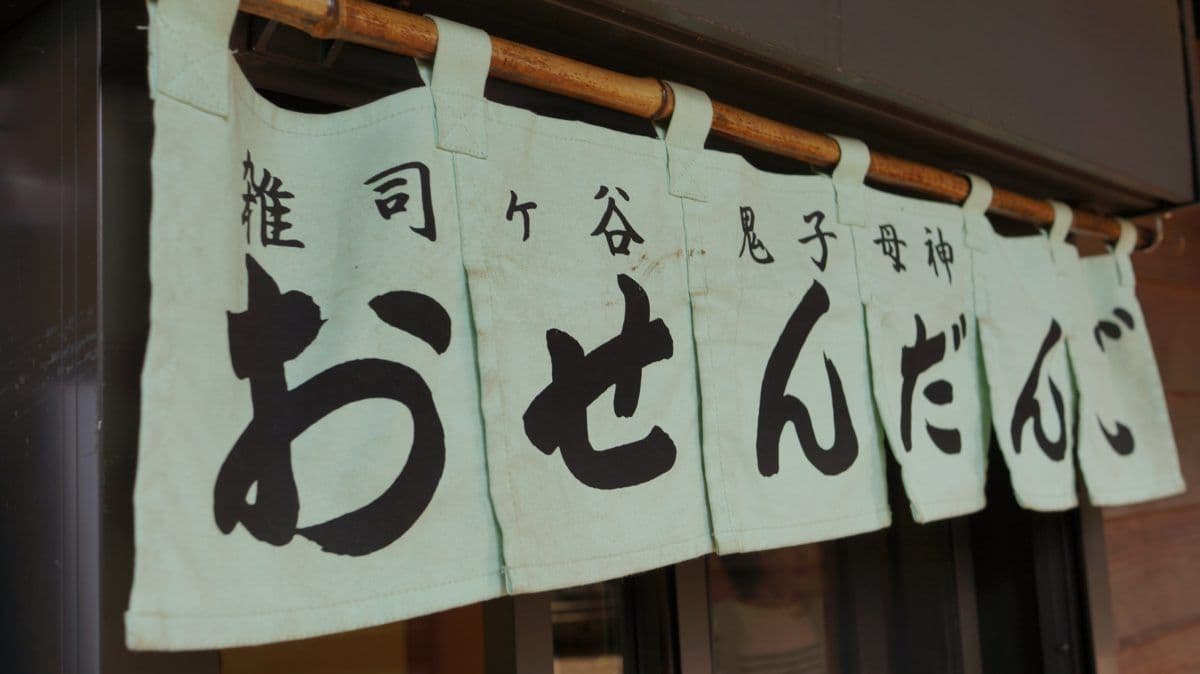 雑司ヶ谷鬼子母神
おせんだんご